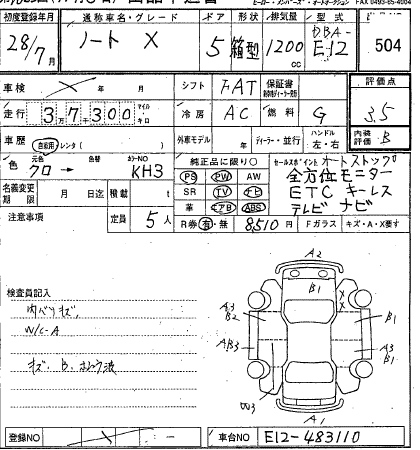 初度登録年月 通称車名・グレード ドア 形状 排気量 型式
28/7月 ノート X 5 箱型 1200cc DBA-E12 504
車検 年 月 シフト FAT 保証書 評価点
走行 37,300 マイル キロ 冷房 AC 燃料 G 3.5
車歴 自家用 レンタ( ) 外車モデル 年 ディーラー・並行 ハンドル 左・右 内装評価 B
色 元色 クロ → 色替 カラーNO KH3 純正品に限り○ セールスポイント オートストップ
全方位モニター
ETC キーレス
テレビ ナビ
PS PW AW
SR TV ナビ
革 エアB ABS
名義変更期限 月 日迄 積載 t
注意事項 定員 5人 R券 有・無 8510円 Fガラス キズ・A・X要す
検査員記入
内ベリキズ,
W/C-A
キズ・B・ホレウ波
A2
B1
A3
B2
X
X
B1
AB3
A3
B1
W3
A1
登録NO 車台NO E12-483110